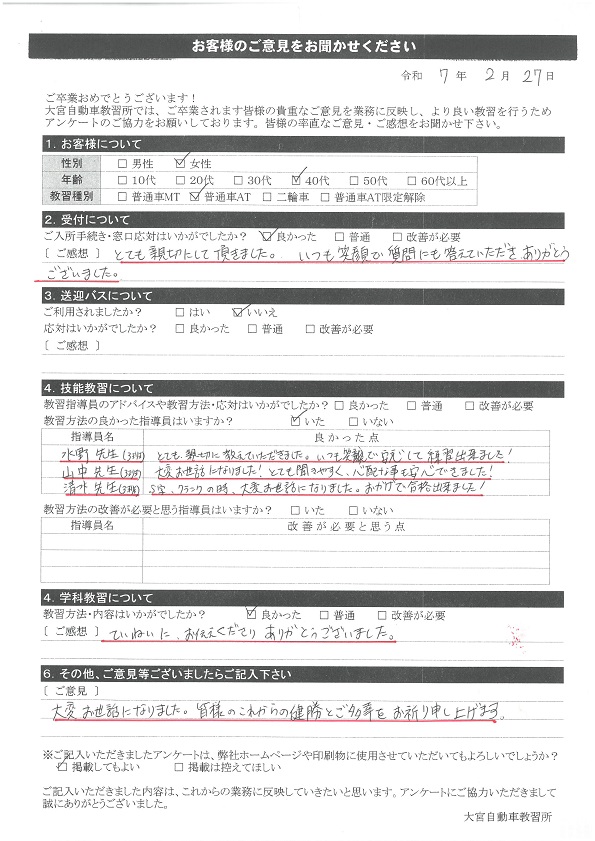 お客様のご意見をお聞かせください
令和 7 年 2 月 27 日
ご卒業おめでとうございます！
大宮自動車教習所では、ご卒業されます皆様の貴重なご意見を業務に反映し、より良い教習を行うため
アンケートのご協力をお願いしております。皆様の率直なご意見・ご感想をお聞かせ下さい。
1. お客様について
性別 □ 男性 ☑ 女性
年齢 □ 10代 □ 20代 □ 30代 ☑ 40代 □ 50代 □ 60代以上
教習種別 □ 普通車MT ☑ 普通車AT □ 二輪車 □ 普通車AT限定解除
2. 受付について
ご入所手続き・窓口応対はいかがでしたか？ ☑ 良かった □ 普通 □ 改善が必要
［ ご感想 ］ とても親切にして頂きました。 いつも笑顔で質問にも答えていただきありがとう
ございました。
3. 送迎バスについて
ご利用されましたか？ □ はい ☑ いいえ
応対はいかがでしたか？ □ 良かった □ 普通 □ 改善が必要
［ ご感想 ］
4. 技能教習について
教習指導員のアドバイスや教習方法・応対はいかがでしたか？ □ 良かった □ 普通 □ 改善が必要
教習方法の良かった指導員はいますか？ ☑ いた □ いない
指導員名 良かった点
水野 先生 とても親切に教えていただきました。いつも笑顔で安心して練習出来ました！
山中 先生 大変お世話になりました！とても聞きやすく、心配な事も安心できました！
清水 先生 S字、クランクの時、大変お世話になりました。おかげで合格出来ました！
教習方法の改善が必要と思う指導員はいますか？ □ いた □ いない
指導員名 改善が必要と思う点
4. 学科教習について
教習方法・内容はいかがでしたか？ ☑ 良かった □ 普通 □ 改善が必要
［ ご感想 ］ ていねいに、お伝えくださり ありがとうございました。
6. その他、ご意見等ございましたらご記入下さい
［ ご意見 ］
大変お世話になりました。皆様のこれからの健勝とご多幸をお祈り申し上げます。
※ご記入いただきましたアンケートは、弊社ホームページや印刷物に使用させていただいてもよろしいでしょうか？
☑ 掲載してもよい □ 掲載は控えてほしい
ご記入いただきました内容は、これからの業務に反映していきたいと思います。アンケートにご協力いただきまして
誠にありがとうございました。
大宮自動車教習所